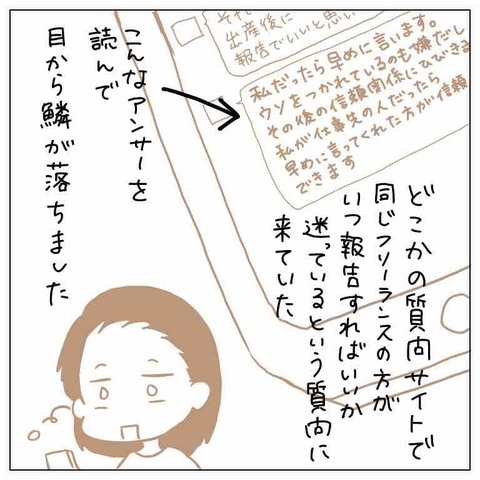 どこかの質問サイトで
同じフリーランスの方が
いつ報告すればいいか
迷っているという質問に
来ていた
それ
出産後に
報告でいいと思い
私だったら早めに言います。
ウソをつかれているのも嫌だし
その後の信頼関係にひびきま
私が仕事先の人だったら
早めに言ってくれた方が信頼
できます
こんなアンサーを
読んで
目から鱗が落ちました